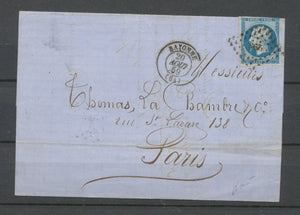 BAYONNE
20
AOUT
60
(64)
Messieurs
Thomas, La Chambre & Cº
rue St Lazare 138
Paris